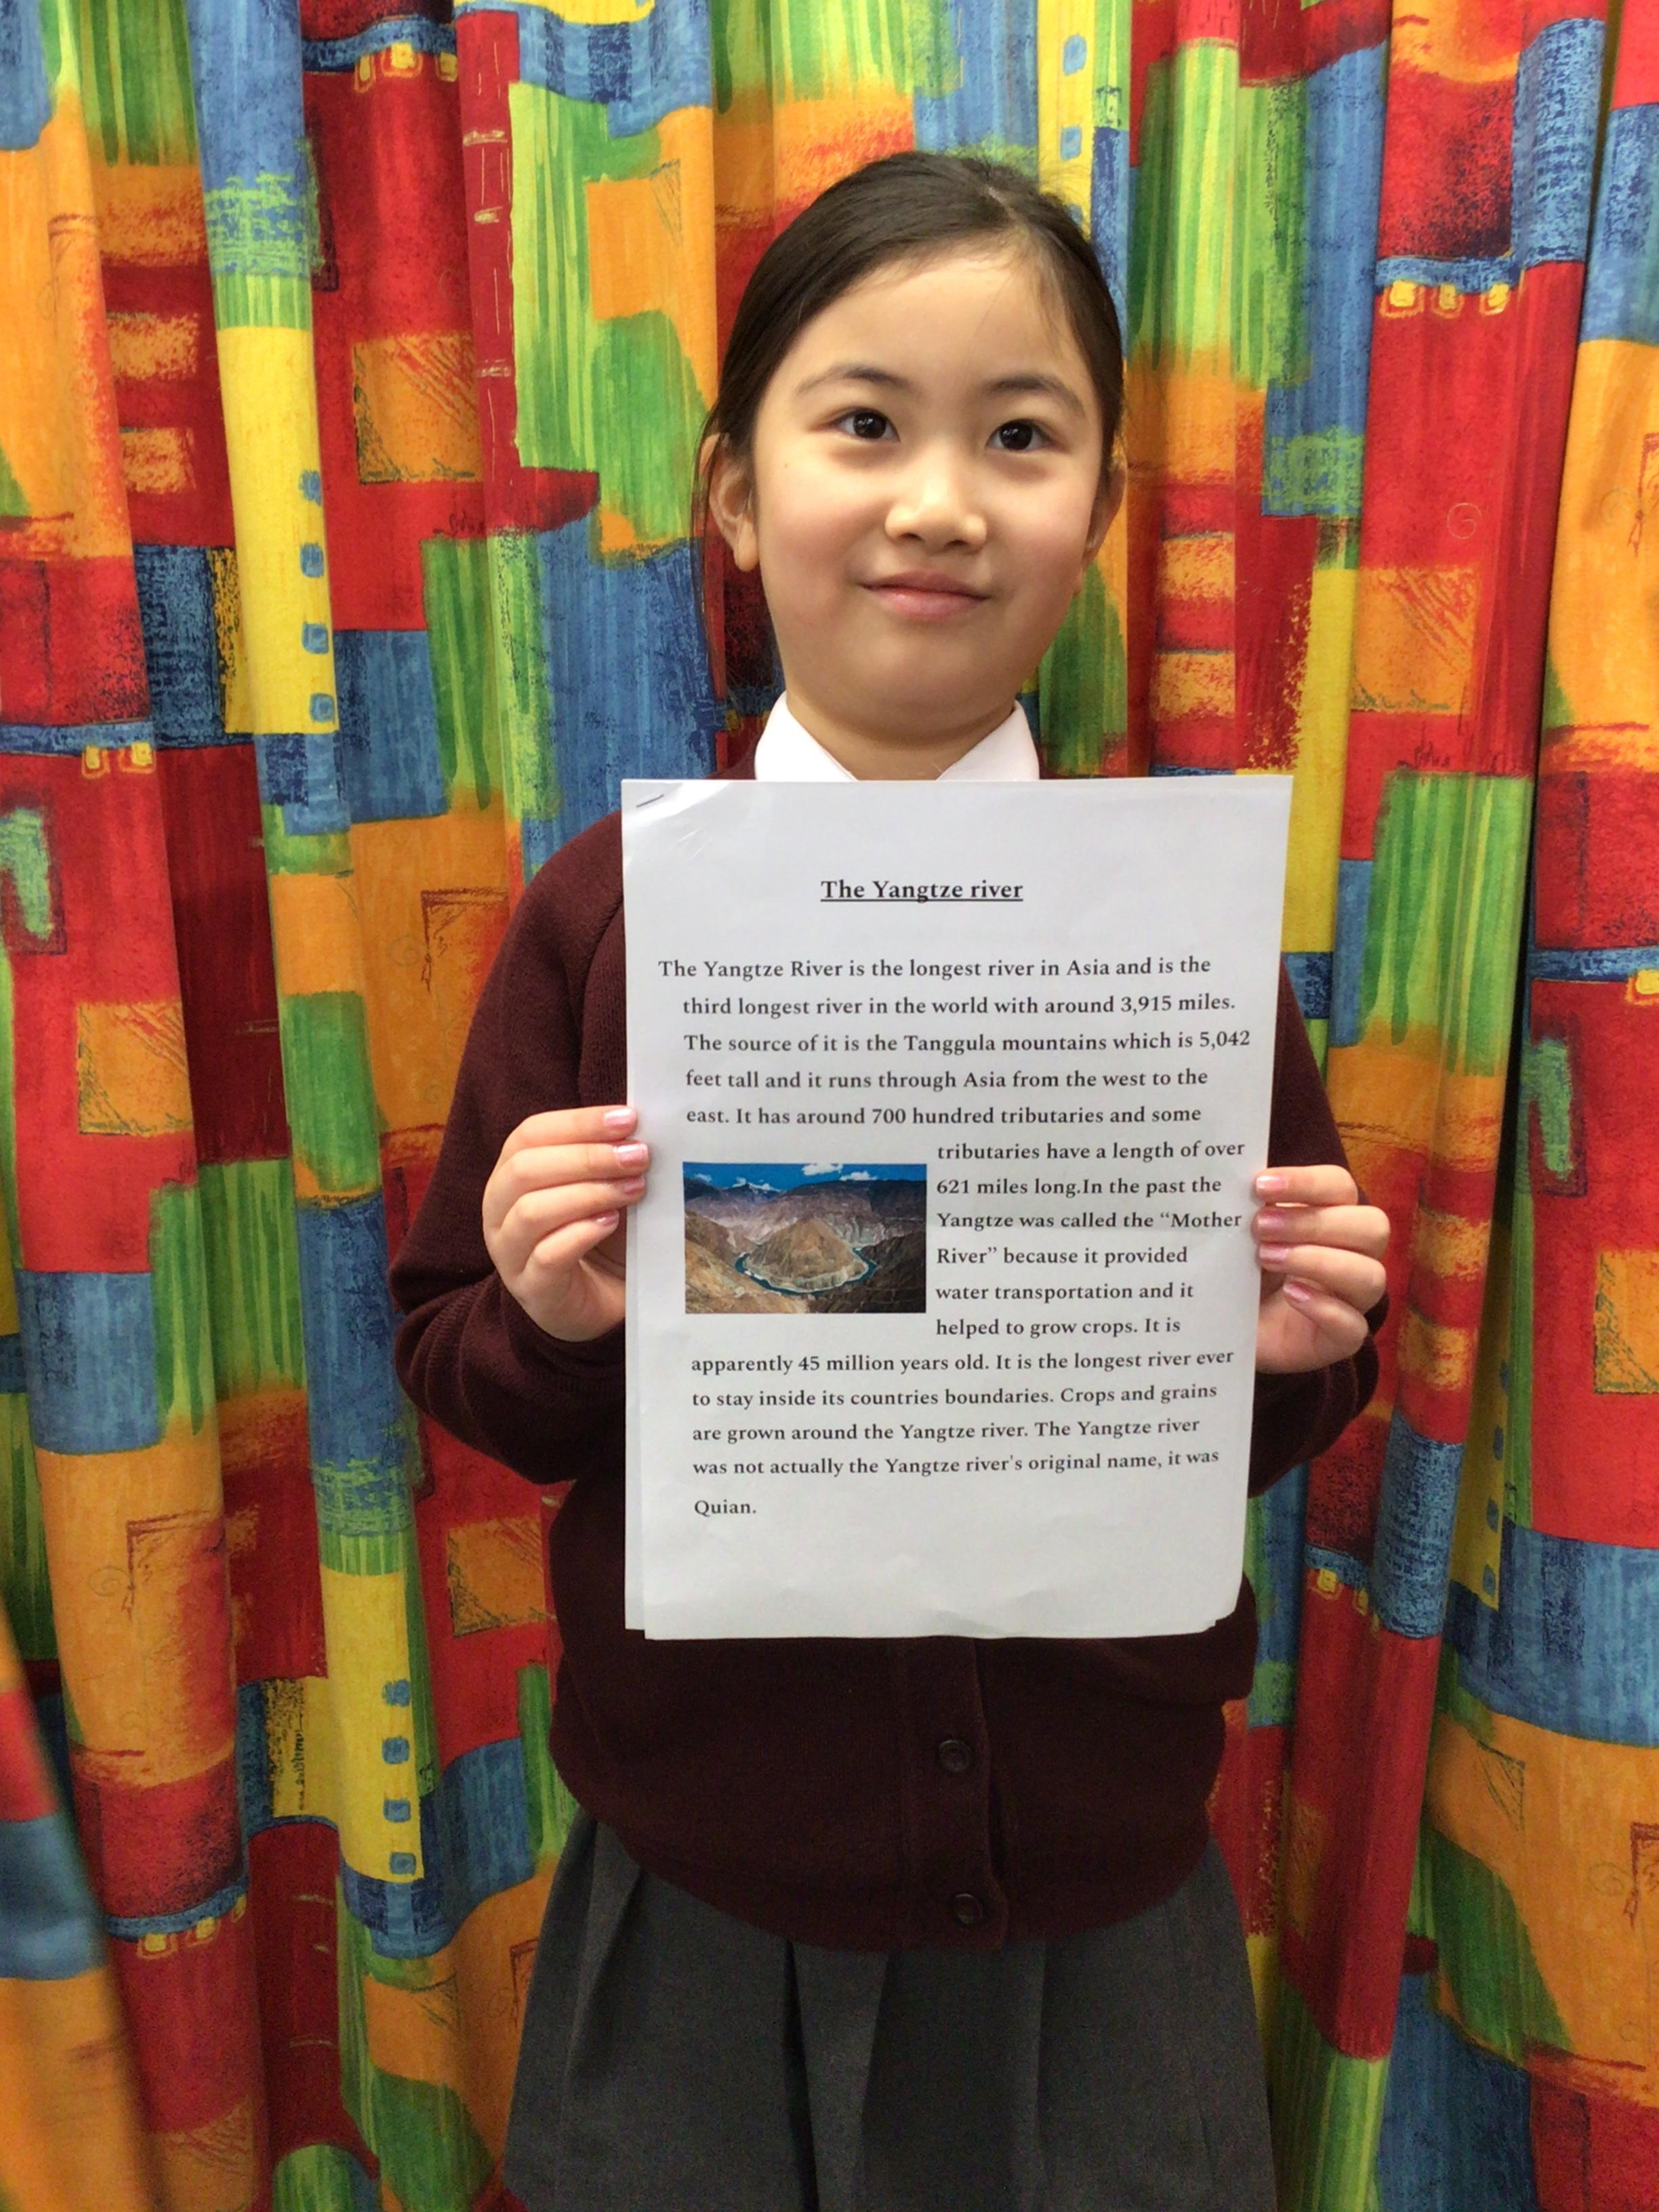 The Yangtze river
The Yangtze River is the longest river in Asia and is the
third longest river in the world with around 3,915 miles.
The source of it is the Tanggula mountains which is 5,042
feet tall and it runs through Asia from the west to the
east. It has around 700 hundred tributaries and some
tributaries have a length of over
621 miles long.In the past the
Yangtze was called the “Mother
River” because it provided
water transportation and it
helped to grow crops. It is
apparently 45 million years old. It is the longest river ever
to stay inside its countries boundaries. Crops and grains
are grown around the Yangtze river. The Yangtze river
was not actually the Yangtze river's original name, it was
Quian.